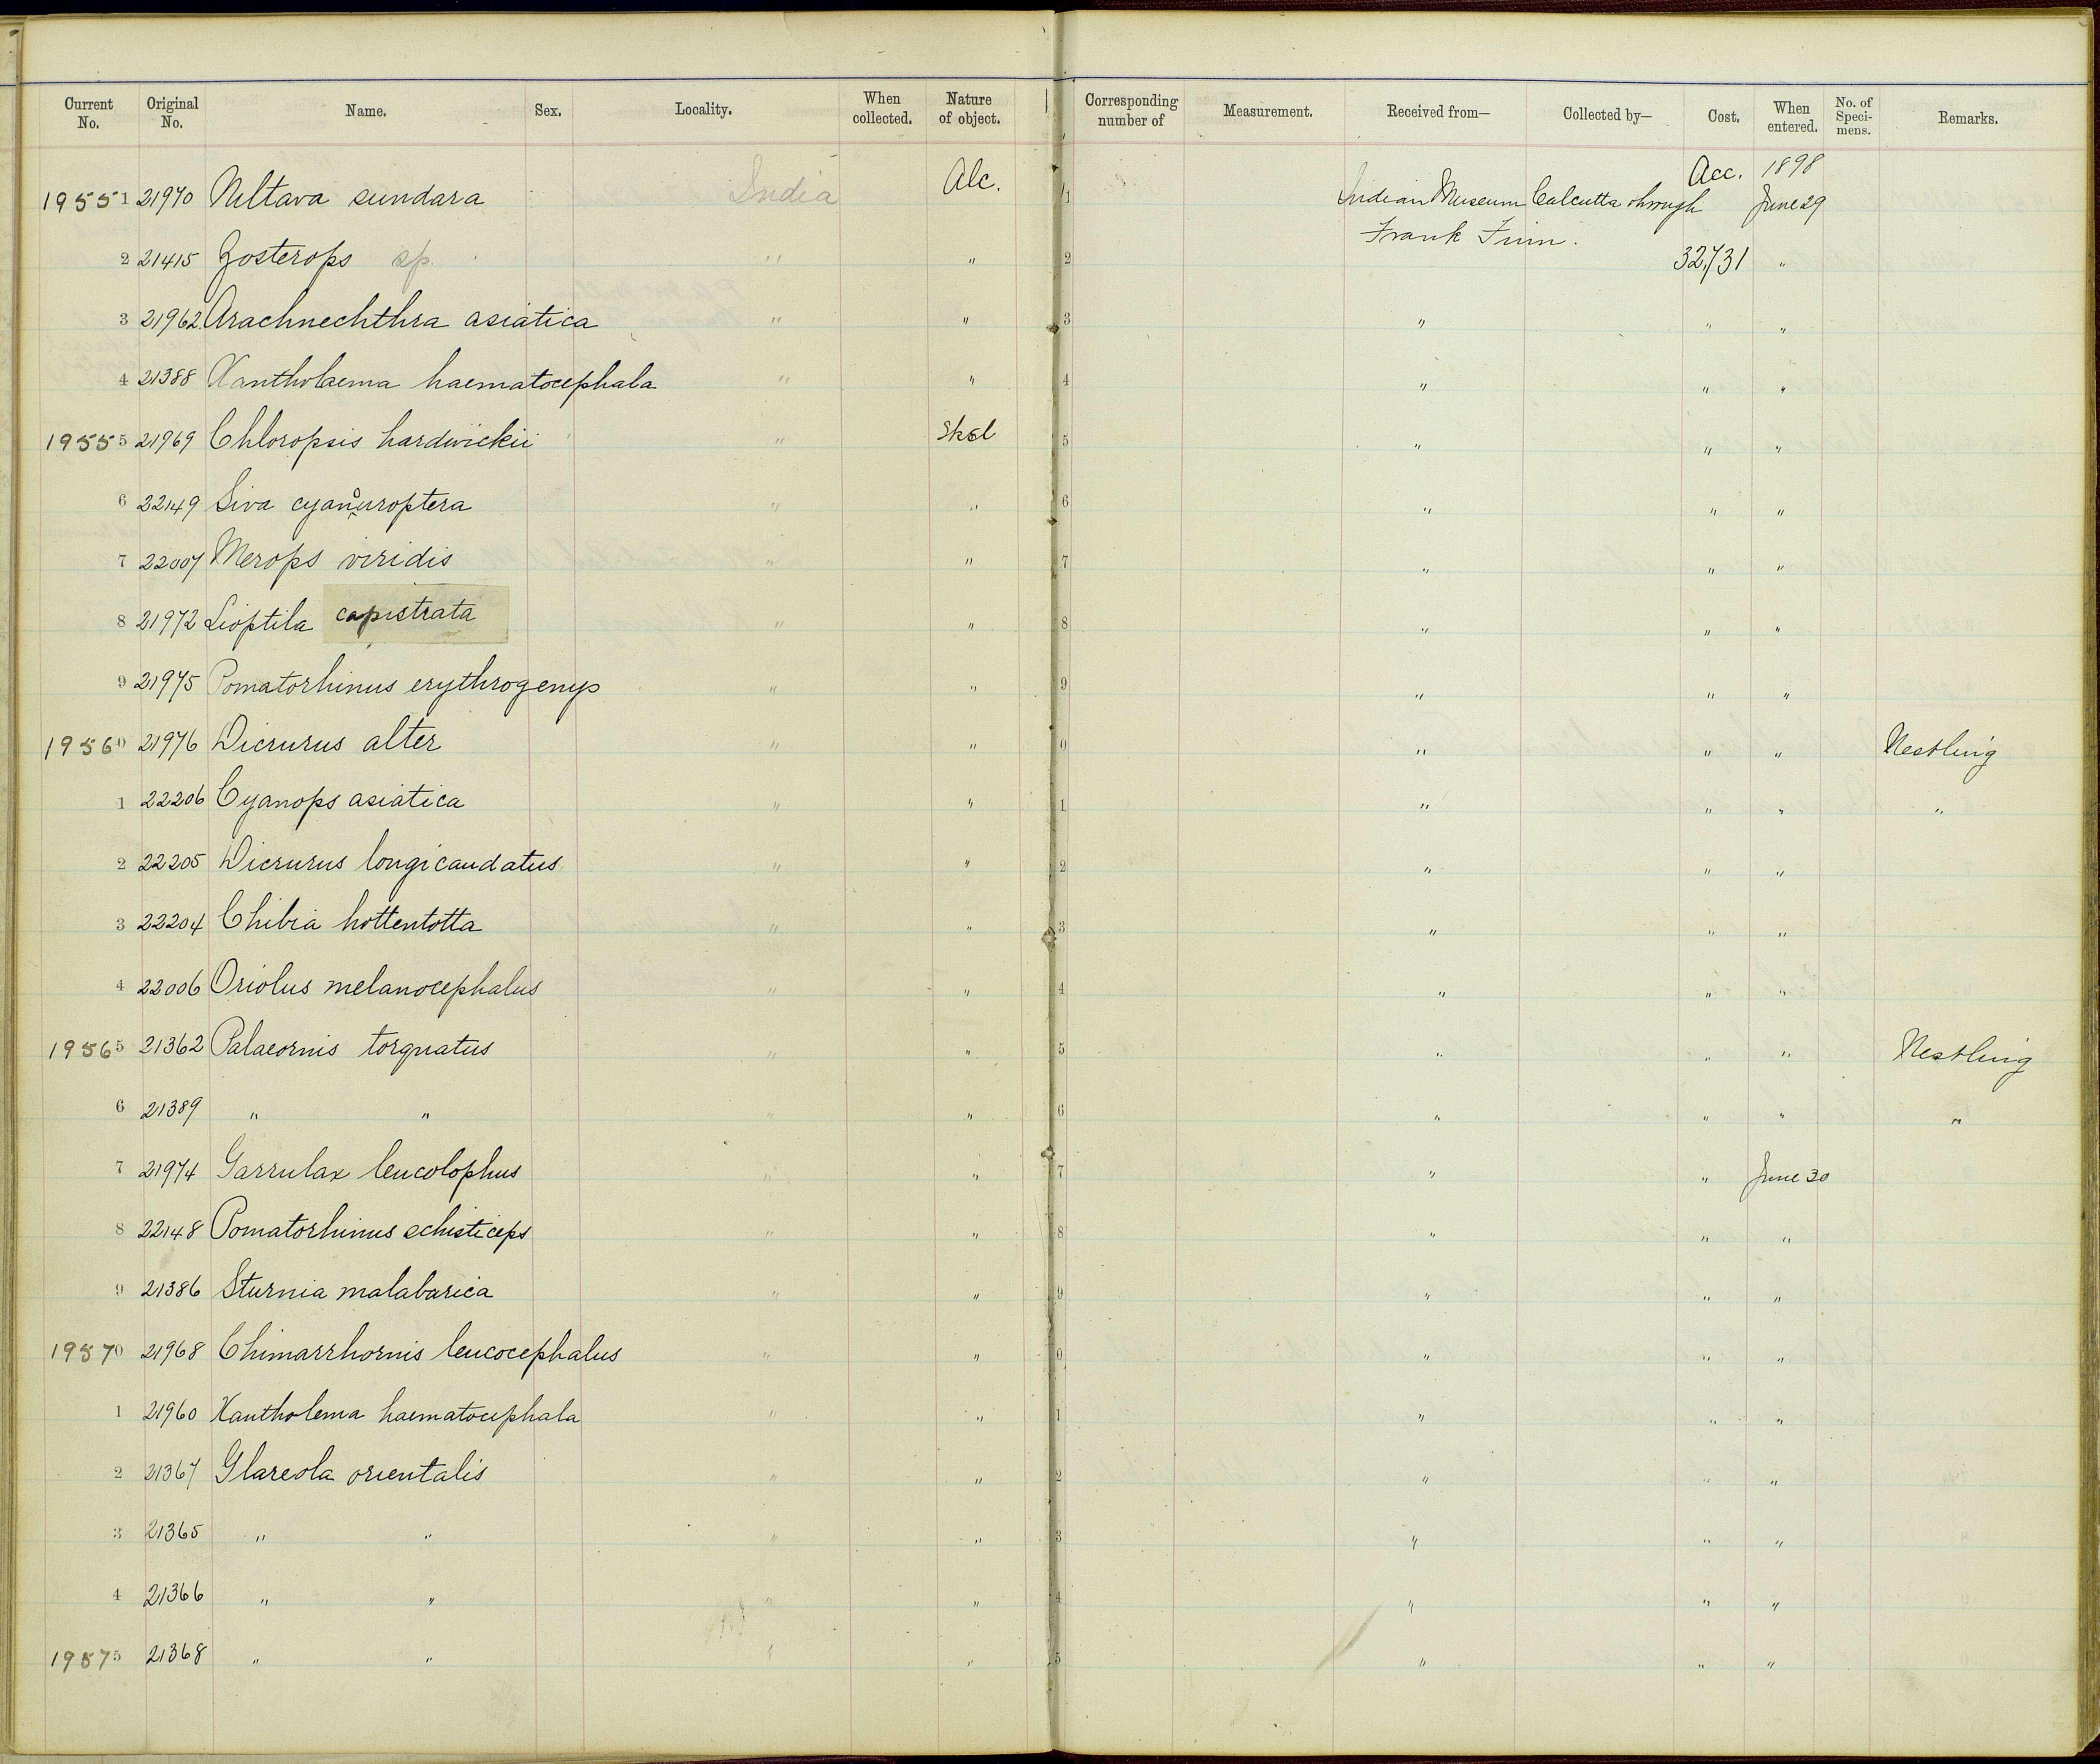 Current No. Original No. Name. Sex. Locality. When collected. Nature of object. Corresponding number of Measurement. Received from— Collected by— Cost. When entered. No. of Speci-mens. Remarks.
Acc. 1898
19551 21970 Niltava sundara India Alc. 1 Indian Museum Calcutta through June 29
Frank Finn.
2 21415 Zosterops sp. " " 2 32,731 "
3 21962 Arachnechthra asiatica " " 3 " " "
4 21388 Xantholaema haematocephala " " 4 " " "
19555 21969 Chloropsis hardwickii " Skel 5 " " "
6 22149 Siva cyanouroptera " " 6 " " "
7 22007 Merops viridis " " 7 " " "
8 21972 Lioptila capistrata " " 8 " " "
9 21975 Pomatorhinus erythrogenys " " 9 " " "
19560 21976 Dicrurus alter " " 0 " " " Nestling
1 22206 Cyanops asiatica " " 1 " " " "
2 22205 Dicrurus longicaudatus " " 2 " " "
3 22204 Chibia hottentotta " " 3 " " "
4 22006 Oriolus melanocephalus " " 4 " " "
19565 21362 Palaeornis torquatus " " 5 " " " Nestling
6 21389 " " " " 6 " " " "
7 21974 Garrulax leucolophus " " 7 " " June 30
8 22148 Pomatorhinus schisticeps " " 8 " " "
9 21386 Sturnia malabarica " " 9 " " "
19570 21968 Chimarrhornis leucocephalus " " 0 " " "
1 21960 Xantholema haematocephala " " 1 " " "
2 21367 Glareola orientalis " " 2 " " "
3 21365 " " " " 3 " " "
4 21366 " " " " 4 " " "
19575 21368 " " " " 5 " " "